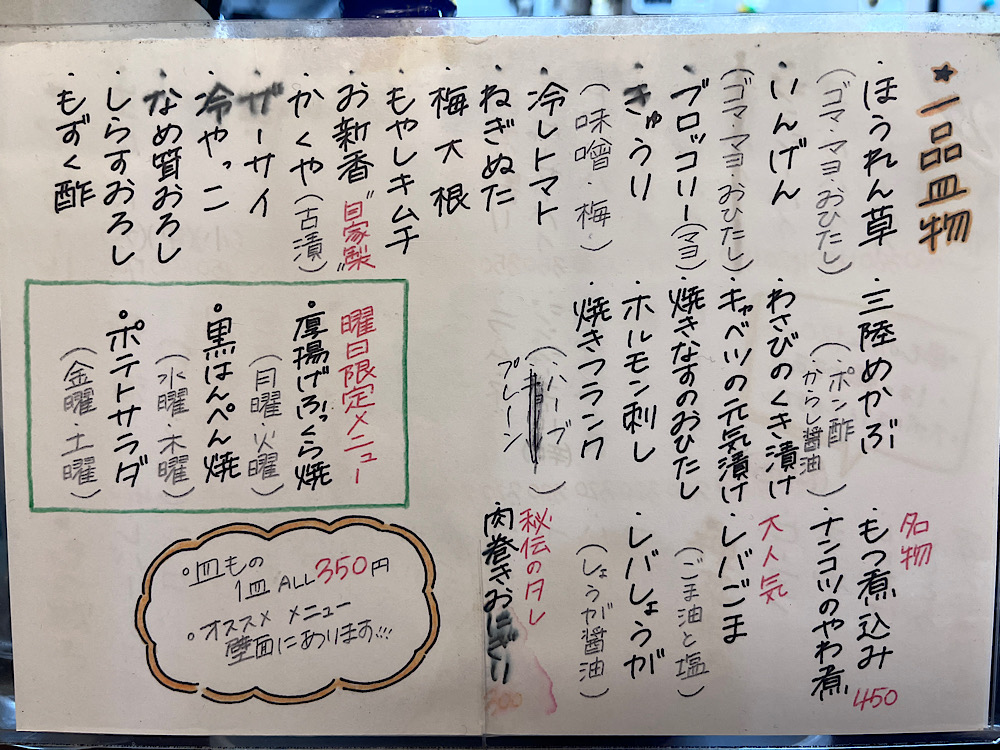 ★一品皿物
・ほうれん草
(ゴマ・マヨ・おひたし)
・いんげん
(ゴマ・マヨ・おひたし)
・ブロッコリー(マヨ)
・きゅうり
(味噌・梅)
・冷しトマト
・ねぎぬた
・梅大根
・もやしキムチ
・お新香"自家製"
・かくや(古漬)
・ザーサイ
・冷やっこ
・なめ茸おろし
・しらすおろし
・もずく酢
・三陸めかぶ
(・ポン酢
・からし醤油)
・わさびのくき漬け
・キャベツの元気漬け
・焼きなすのおひたし
・ホルモン刺し
・焼きフランク
(・ハーブ
プレーン)
名物
・もつ煮込み
450
・ナンコツのやわ煮
大人気
・レバごま
(ごま油と塩)
・レバしょうが
(しょうが醤油)
秘伝のタレ
肉巻きおにぎり
300
曜日限定メニュー
・厚揚げふっくら焼
(月曜・火曜)
・黒はんぺん焼
(水曜・木曜)
・ポテトサラダ
(金曜・土曜)
・皿もの
1皿 ALL350円
・オススメ メニュー
壁面にあります…